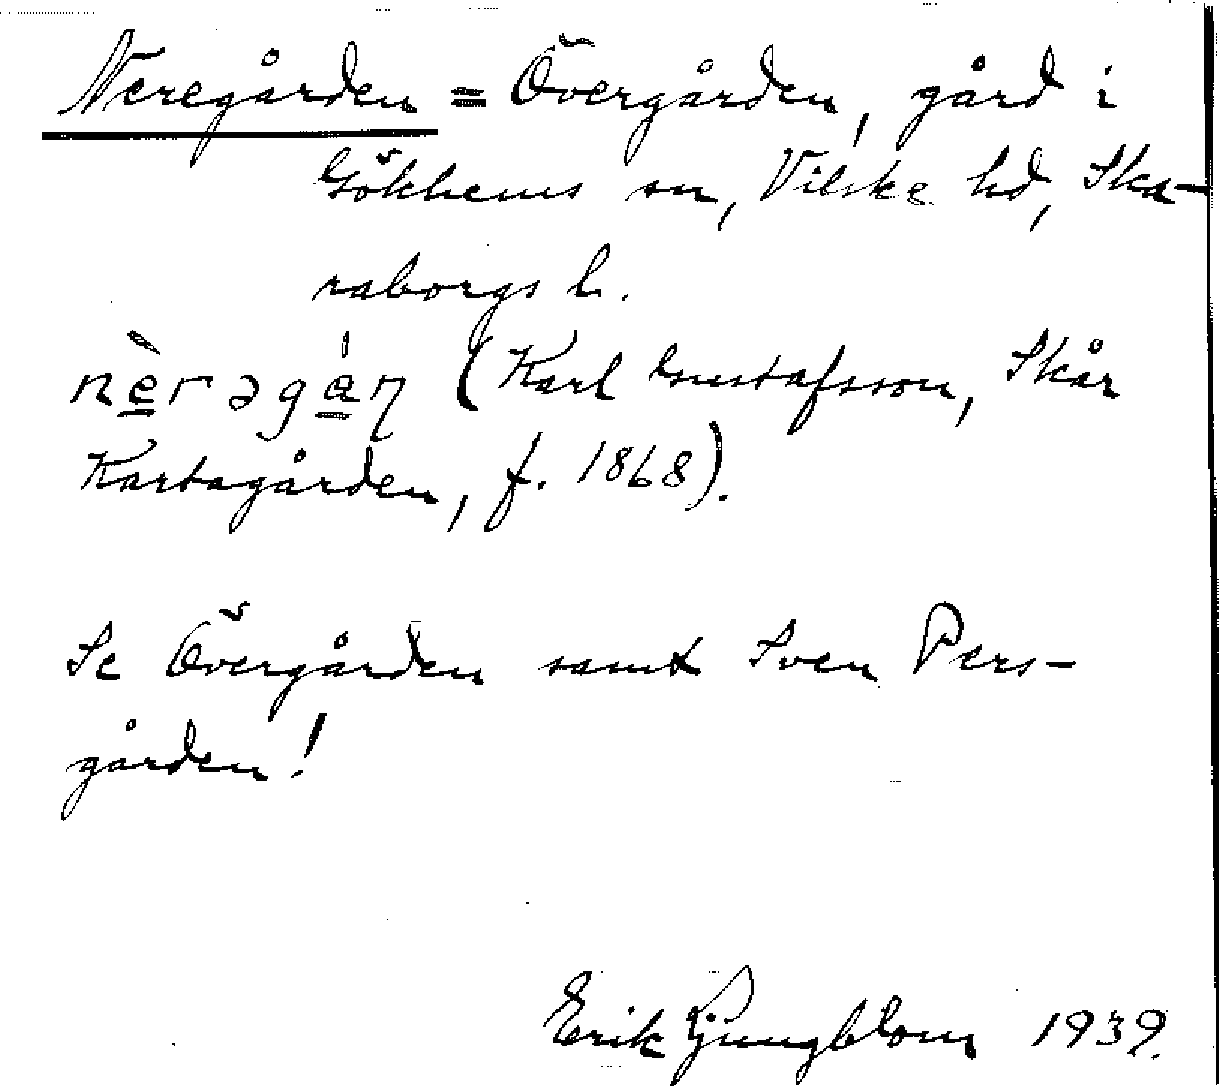 Neregården = Övergården, gård i
Gökhems sn, Vilske hd, Ska-
raborgs l.
nè̲rəgá̲ɳ (Karl Gustafsson, Skår
Kartagården, f. 1868).
Se Övergården samt Sven Pers-
gården!
Erik Ljungblom 1939.